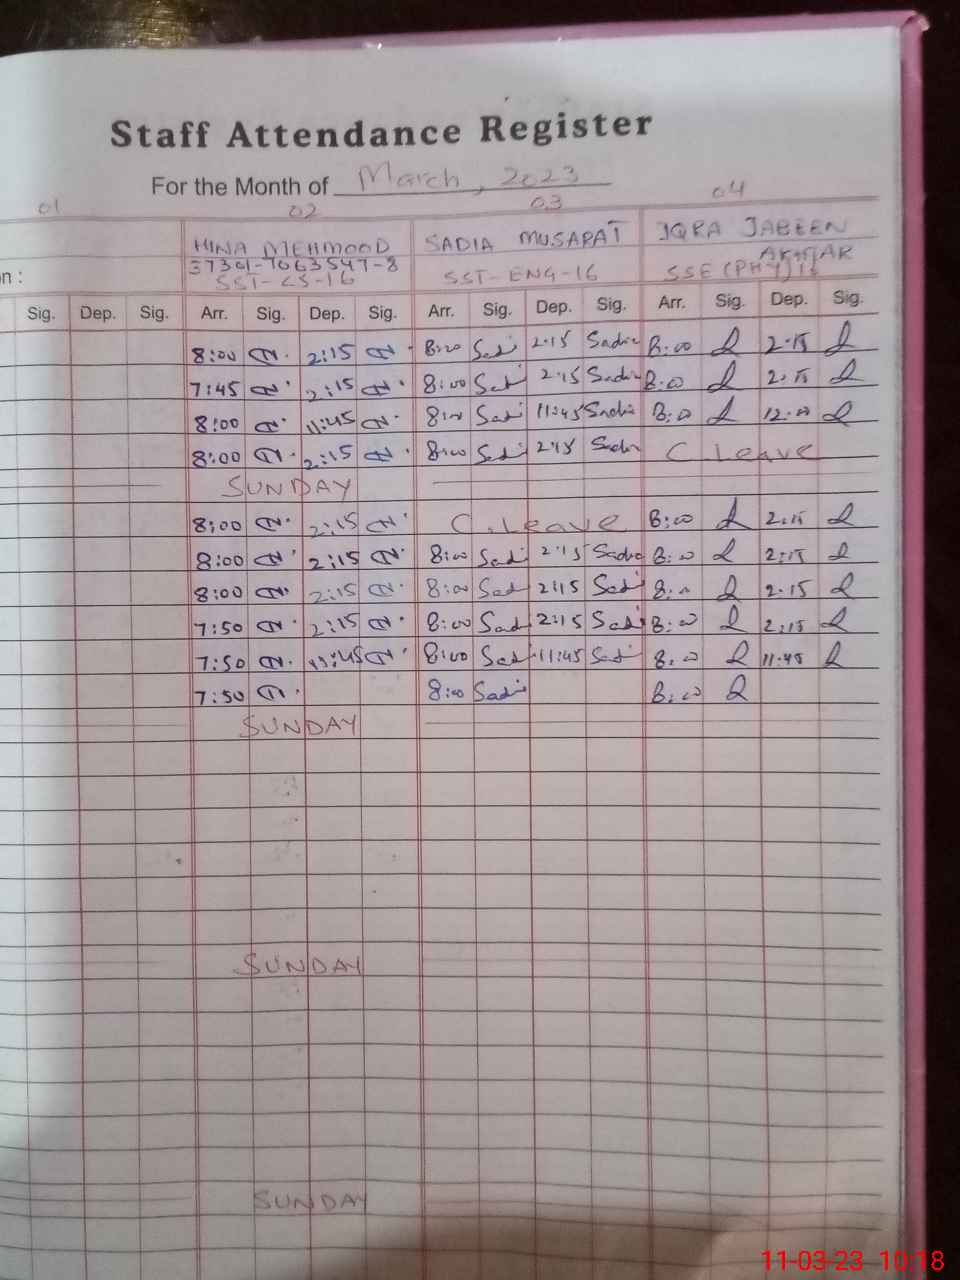 Staff Attendance Register
For the Month of March, 2023
01 02 03 04
HINA MEHMOOD SADIA MUSARAT IQRA JABEEN
37301-7063547-8 AKHTAR
n : SST-CS-16 SST-ENG-16 SSE (PHY) 16
Sig. Dep. Sig. Arr. Sig. Dep. Sig. Arr. Sig. Dep. Sig. Arr. Sig. Dep. Sig.
8:00 2:15 8:00 Sadi 2:15 Sadia 8:00 2:15
7:45 2:15 8:00 Sadi 2:15 Sadia 8:00 2:15
8:00 11:45 8:00 Sadi 11:45 Sadia 8:00 12:00
8:00 2:15 8:00 Sadi 2:15 Sadia C Leave
SUNDAY
8:00 2:15 C.Leave 8:00 2:15
8:00 2:15 8:00 Sadi 2:15 Sadia 8:00 2:15
8:00 2:15 8:00 Sadi 2:15 Sadi 8:00 2:15
7:50 2:15 8:00 Sadi 2:15 Sadi 8:00 2:15
7:50 11:45 8:00 Sadi 11:45 Sadi 8:00 11:45
7:50 8:00 Sadi 8:00
SUNDAY
SUNDAY
SUNDAY
11-03-23 10:18